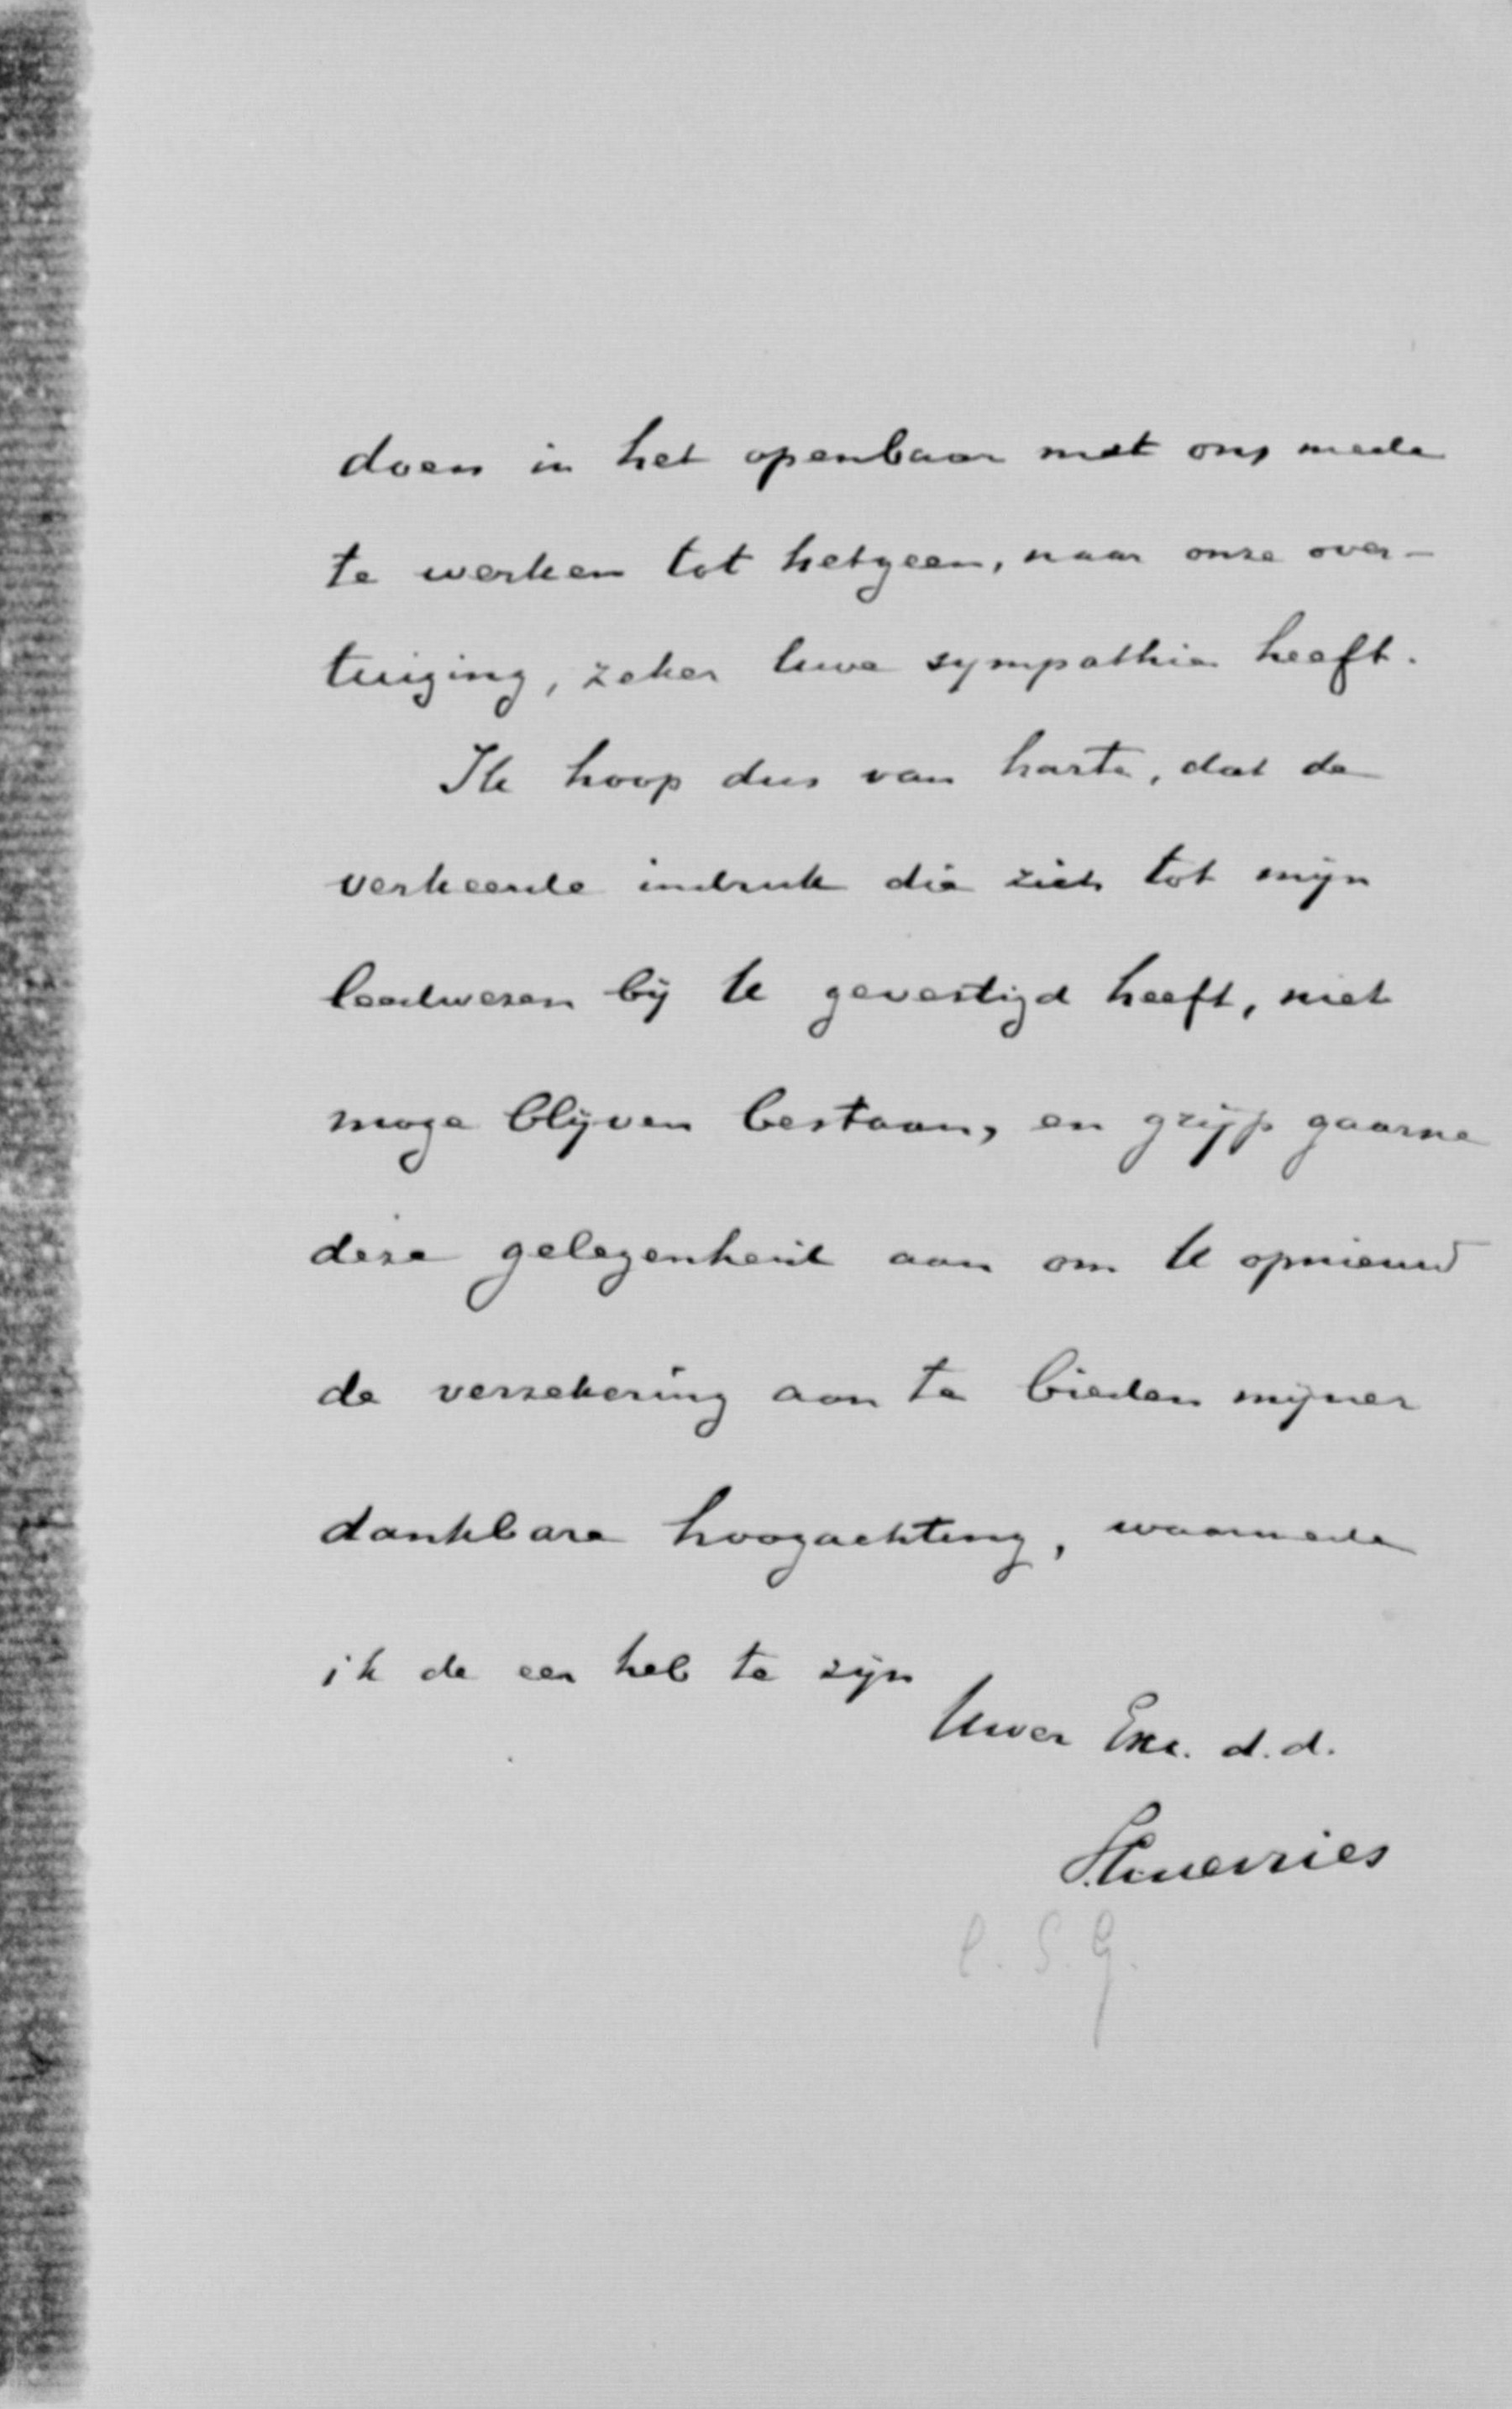 doen in het openbaar met ons mede
te werken tot hetgeen, naar onze over-
tuiging, zeker Uwe sympathie heeft.
Ik hoop dus van harte, dat de
verkeerde indruk die zich tot mijn
leedwezen bij U gevestigd heeft, niet
moge blijven bestaan, en grijp gaarne
deze gelegenheid aan om U opnieuw
de verzekering aan te bieden mijner
dankbare hoogachting, waarmede
ik de eer heb te zijn
Uwer Exc. d.d.
C. S. G.